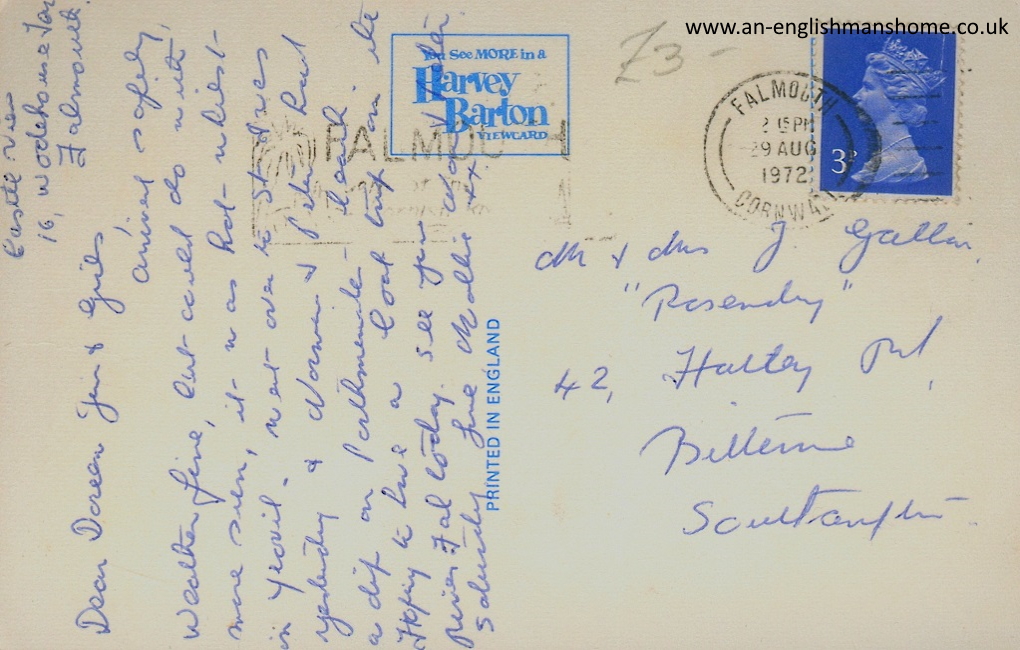 www.an-englishmanshome.co.uk
You See MORE in a
Harvey
Barton
VIEWCARD
FALMOUTH
FALMOUTH
2 15 PM
29 AUG
1972
CORNWALL
3P
Z3 -
Castle View
16, Wodehouse Ter
Falmouth.
Dear Doreen Jim & Girls
arrived safely,
weather fine, but could do with
more sun, it was hot whilst
in Yeovil - went over to St Ives
yesterday & Norman & Peter had
a dip on Porthmeor
Hoping to have a boat trip on the
River Fal today. see you on
Saturday love Mollie xx
Mr & Mrs J
"Rosenday"
42,
Bitterne
Southampton.
PRINTED IN ENGLAND